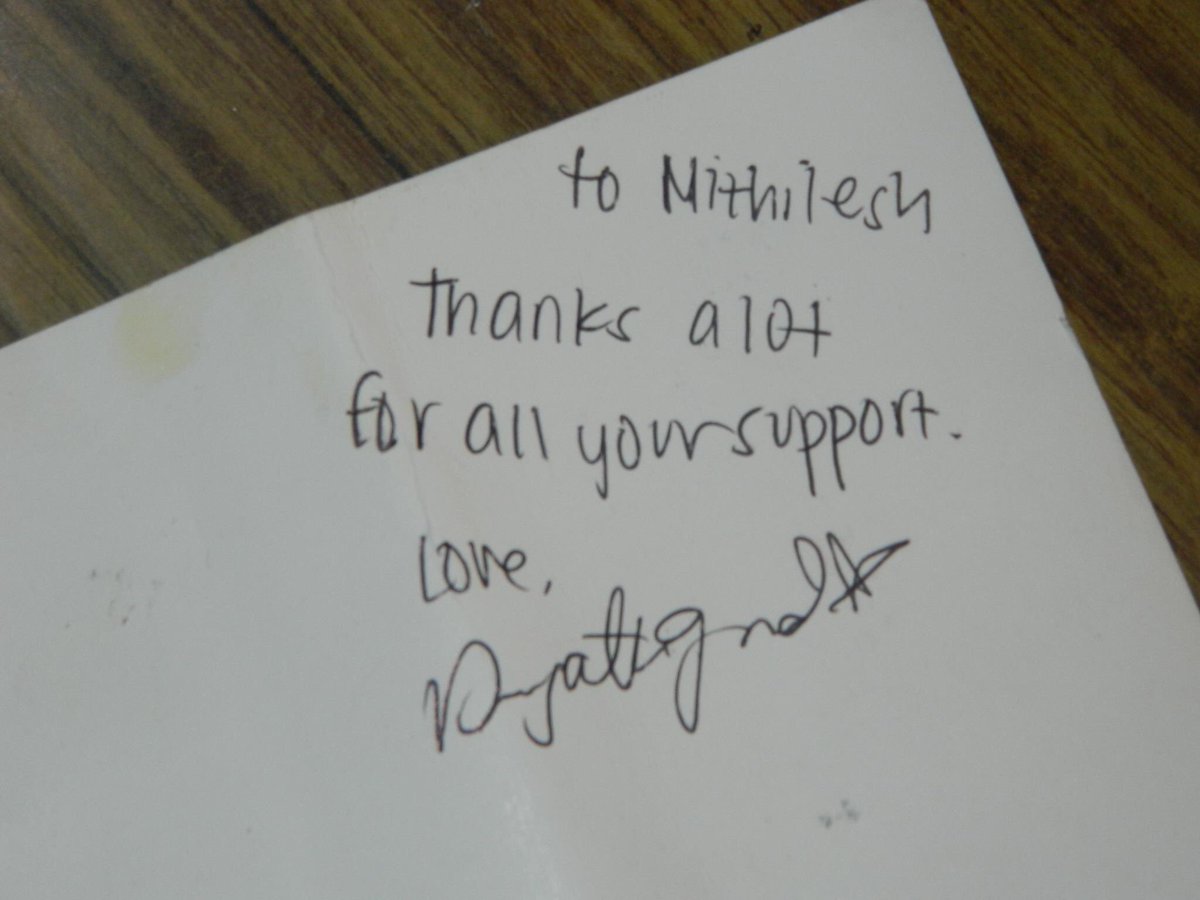 to Mithilesh
thanks a lot
for all your support.
love,